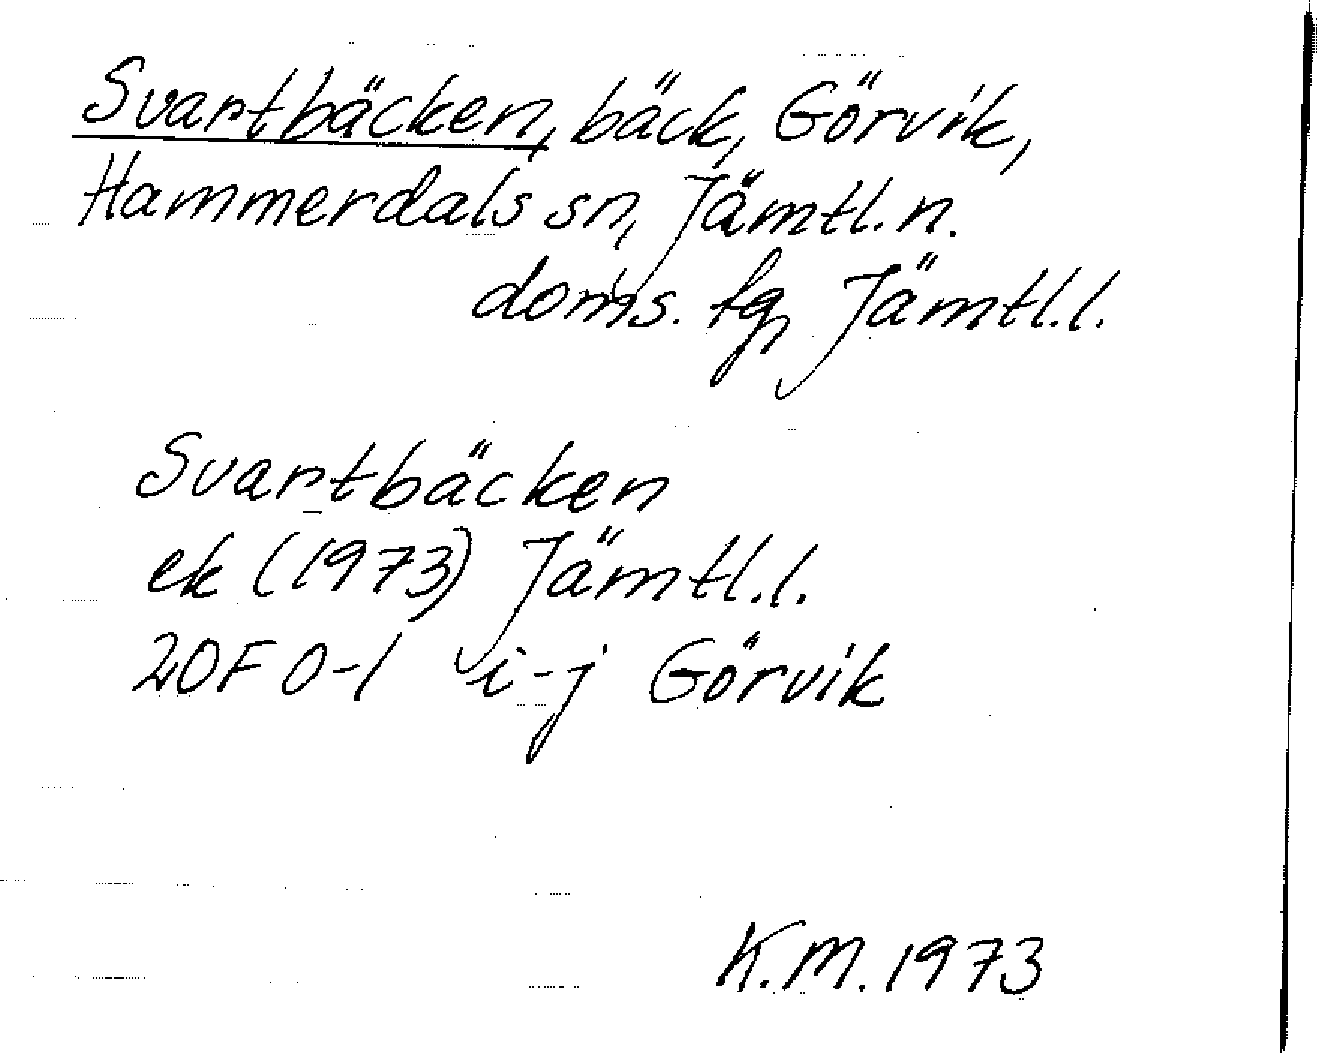 Svartbäcken, bäck, Görvik,
Hammerdals sn, Jämtl. n.
doms. fg, Jämtl. l.
Svartbäcken
ek (1973) Jämtl. l.
20F 0-1 i-j Görvik
K.M. 1973